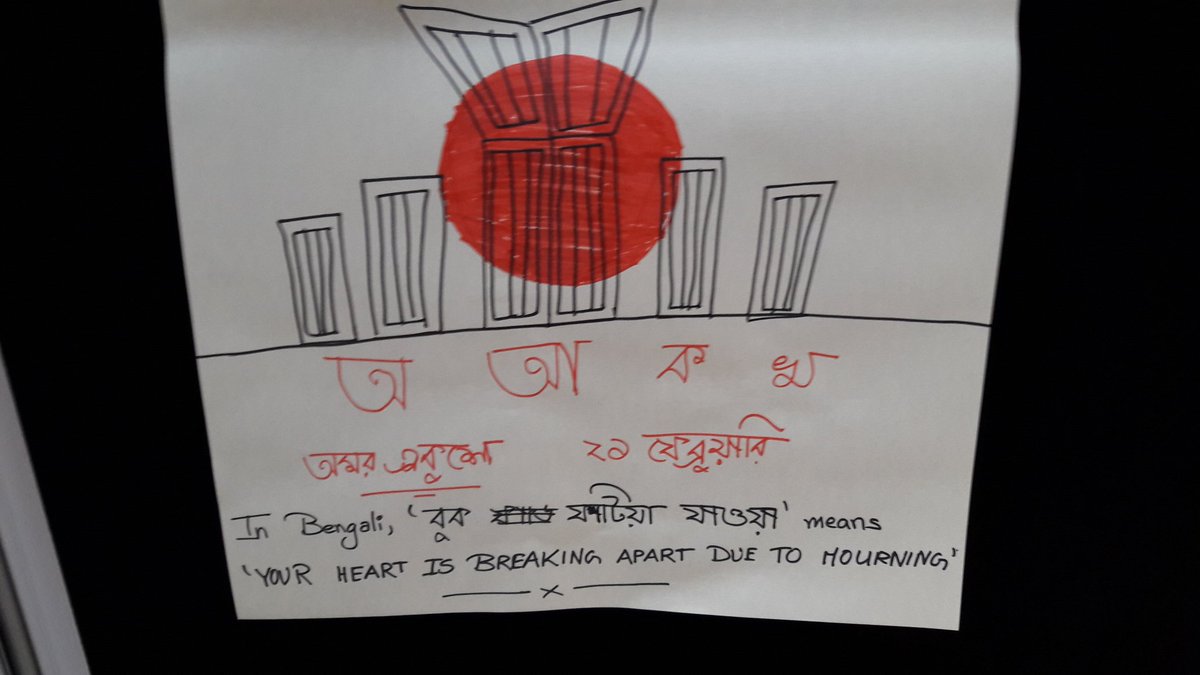 অ আ ক খ
অমর একুশে ২১ ফেব্রুয়ারি
In Bengali, 'বুক ফাটিয়া যাওয়া' means
'YOUR HEART IS BREAKING APART DUE TO MOURNING'
x